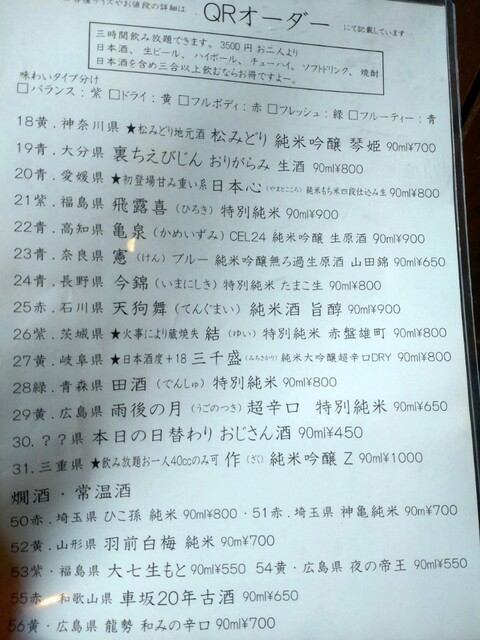 種類やお値段の詳細は QRオーダー にて記載しています
三時間飲み放題できます。3500円 お二人より
日本酒、生ビール、ハイボール、チューハイ、ソフトドリンク、焼酎
日本酒を含め三合以上飲むならお得ですよー。
味わいタイプ分け
□バランス：紫 □ドライ：黄 □フルボディ：赤 □フレッシュ：緑 □フルーティー：青
18黄．神奈川県 ★松みどり地元酒 松みどり 純米吟醸 琴姫 90ml¥700
19青．大分県 裏ちえびじん おりがらみ 生酒 90ml¥800
20青．愛媛県 ★初登場甘み重い系 日本心（やまとこころ）純米もち米四段仕込み生 90ml¥800
21紫．福島県 飛露喜（ひろき）特別純米 90ml¥900
22青．高知県 亀泉（かめいずみ）CEL24 純米吟醸 生原酒 90ml¥900
23青．奈良県 憲（けん）ブルー 純米吟醸無ろ過生原酒 山田錦 90ml¥650
24青．長野県 今錦（いまにしき）特別純米 たまこ生 90ml¥800
25赤．石川県 天狗舞（てんぐまい）純米酒 旨醇 90ml¥900
26紫．茨城県 ★火事により蔵焼失 結（ゆい）特別純米 赤盤雄町 90ml¥800
27黄．岐阜県 ★日本酒度＋18 三千盛（みちさかり）純米大吟醸超辛口DRY 90ml¥800
28緑．青森県 田酒（でんしゅ）特別純米 90ml¥800
29黄．広島県 雨後の月（うごのつき）超辛口 特別純米 90ml¥650
30．？？県 本日の日替わり おじさん酒 90ml¥450
31．三重県 ★飲み放題お一人40ccのみ可 作（ざく）純米吟醸 Z 90ml¥1000
燗酒・常温酒
50赤．埼玉県 ひこ孫 純米 90ml¥800・51赤．埼玉県 神亀純米 90m¥700
52黄．山形県 羽前白梅 純米 90ml¥700
53紫・福島県 大七生もと 90ml¥550 54黄・広島県 夜の帝王 90ml¥550
55赤・和歌山県 車坂20年古酒 90ml¥650
56黄・広島県 龍勢 和みの辛口 90ml¥700